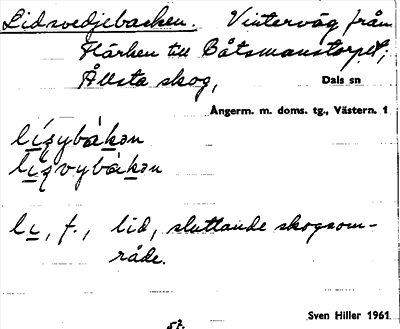 Lidsvedjebacken. Vinterväg från
Härken till Båtsmanstorpet;
Ållsta skog,
Dals sn
Ångerm. m. doms. tg., Västern. 1
li̱, f., lid, sluttande skogsom-
råde.
Sven Hiller 1961